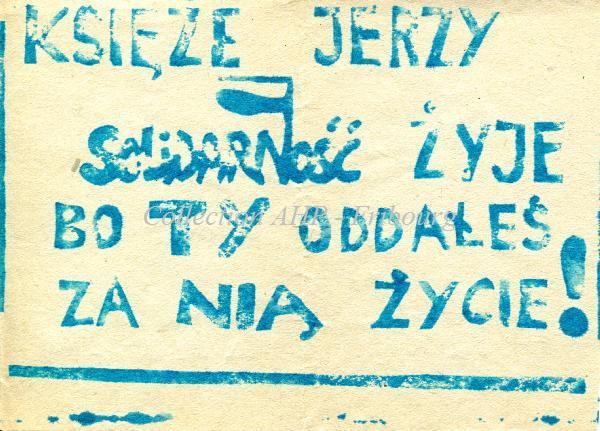 KSIĘŻE JERZY
SOLIDARNOŚĆ ŻYJE
BO TY ODDAŁEŚ
ZA NIĄ ŻYCIE!
Collection AHR - Fribourg